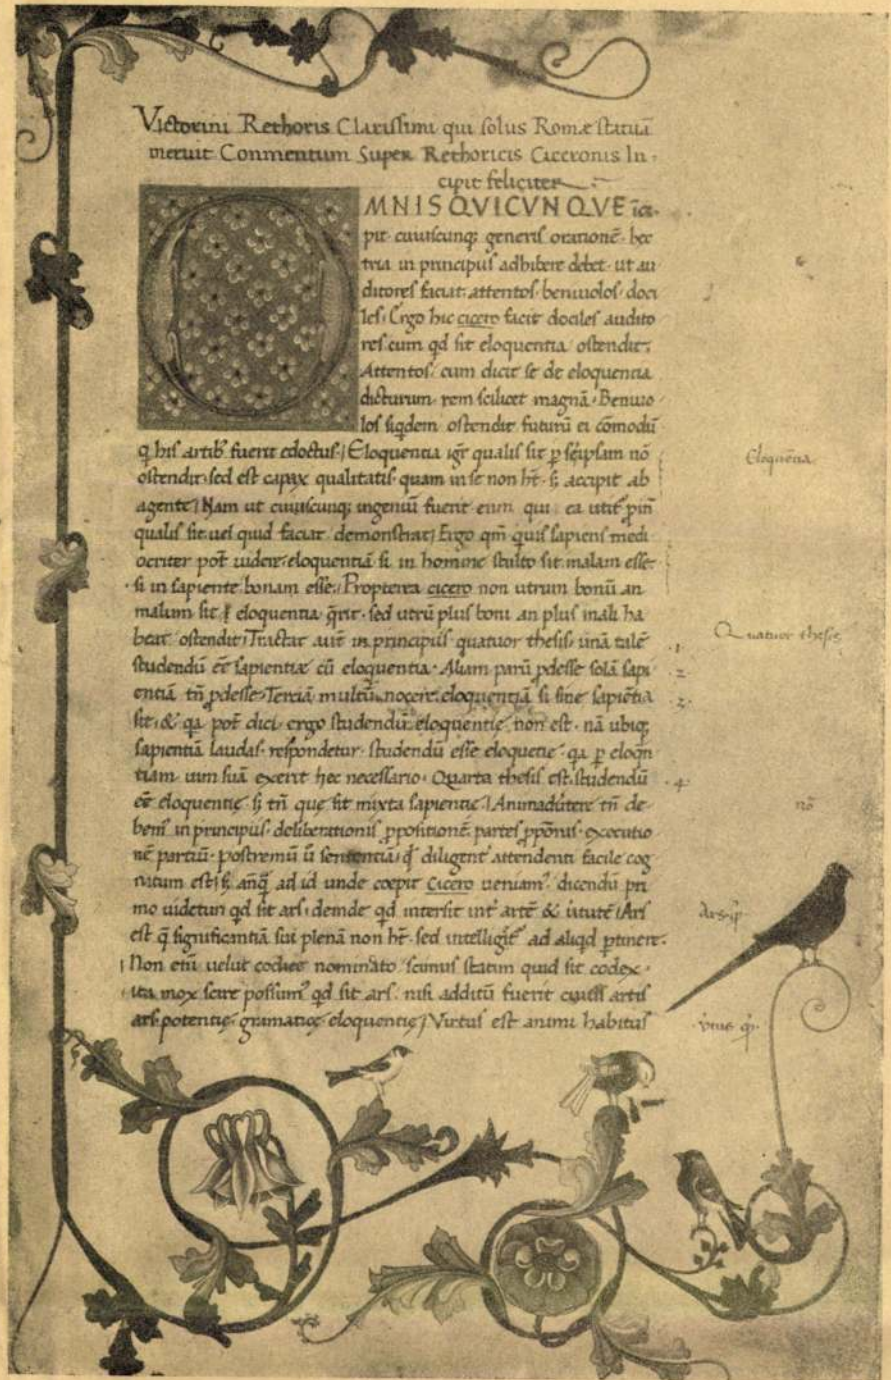 Victorini Rethoris Clarissimi qui solus Romæ statuã
meruit Conmentum Super Rethoricis Ciceronis In-
cipit feliciter
OMNIS QVICVNQVE ĩci-
pit cuiuscunq; generis orationẽ hec
tria in principiis adhibere debet ut au
ditores faciat attentos beniuolos doci
les. Ergo hic cicero facit dociles audito
res cum qd sit eloquentia ostendit;
Attentos cum dicit se de eloquentia
dicturum rem scilicet magnã. Beniuo
los siqdem ostendit futurũ ei cõmodũ
q his artib fuerit edoctus. Eloquentia igr qualis sit p seipsam nõ
ostendit sed est capax qualitatis quam in se non ht s; accipit ab
agente Nam ut cuiuscunq; ingeniũ fuerit eum qui ea utit
qualis sit uel quid faciat demonstrat Ergo qm̃ quis sapiens medi
ocriter pot uidere eloquentiã si in homine stulto sit malam esse
si in sapiente bonam esse. Propterea cicero non utrum bonũ an
malum sit eloquentia q̃rit sed utrũ plus boni an plus mali ha
beat ostendit Tractat aut in principiis quatuor thesis unã talẽ
studendũ eẽ sapientiæ cũ eloquentia. Aliam parũ pdesse solã sapi
entiã tñ pdesse. Terciã multũ nocere eloquentiã si sine sapiẽtia
sit, & qa pot dici ergo studendũ eloquentię non est nã ubiq;
sapientiã laudas respondetur studendũ esse eloquẽtię qa p eloqn̄
tiam uim suã exerit hec necessario. Quarta thesis est studendũ
eẽ eloquentię s; tñ quę sit mixta sapientię Animadũtere tñ de
bem' in principiis deliberationis ppositionẽ partes pponis executio
nẽ partiũ postremũ ũ sententiã q diligent' attendenti facile cog
nitum est s; anq̃ ad id unde coepit Cicero ueniam' dicendũ pri
mo uidetur qd sit ars deinde qd intersit int' artẽ & ũtutẽ Ars
est q̃ significantiã sui plenã non ht sed intelligit' ad aliqd ptinere.
Non etiĩ uelut codice nominato scimus statim quid sit codex
ita mox scire possum' qd sit ars nisi additũ fuerit cuius artis
ars potentię gramaticę eloquentię Virtus est animi habitus
Eloquẽtia
Quatuor thesis
1
2
3
4
nõ